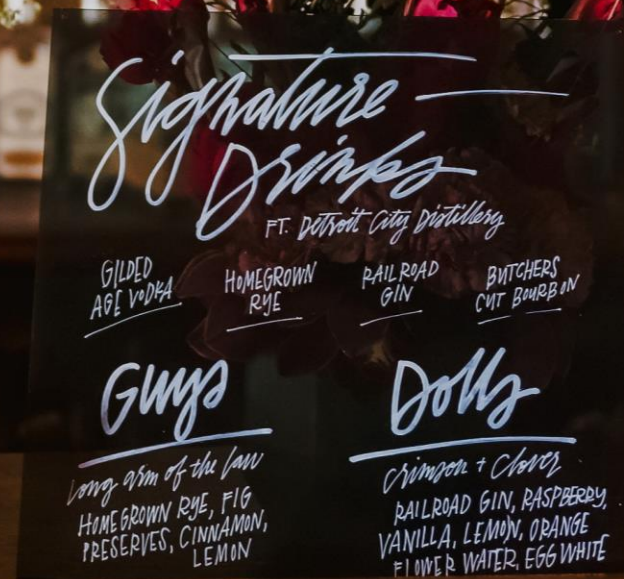 Signature
Drinks
FT. Detroit City Distillery
GILDED
AGE VODKA
HOMEGROWN
RYE
RAILROAD
GIN
BUTCHERS
CUT BOURBON
Guys
long arm of the law
HOMEGROWN RYE, FIG
PRESERVES, CINNAMON,
LEMON
Dolls
crimson + Clover
RAILROAD GIN, RASPBERRY,
VANILLA, LEMON, ORANGE
FLOWER WATER, EGG WHITE